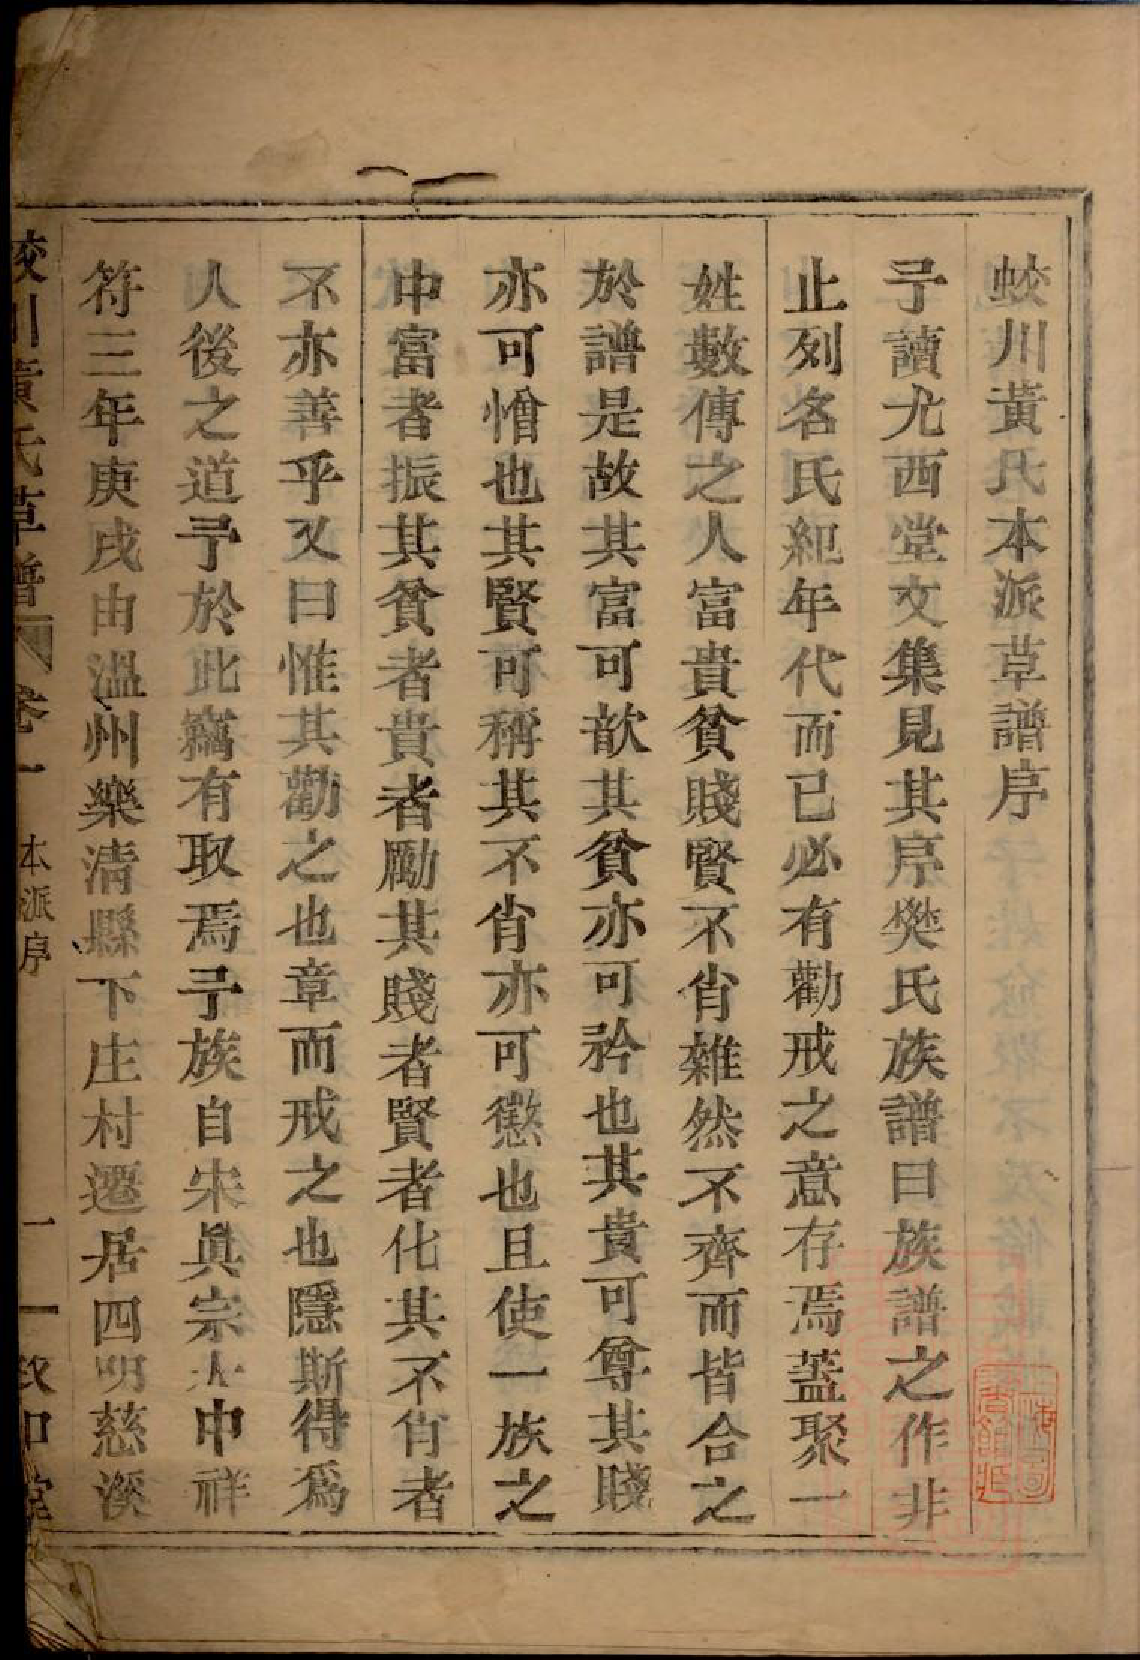 蛟川黃氏本派草譜序
予讀尤西堂文集見其序樊氏族譜曰族譜之作非
止列名氏紀年代而已必有勸戒之意存焉蓋聚一
姓數傳之人富貴貧賤賢不肖雜然不齊而皆合之
於譜是故其富可歆其貧亦可矜也其貴可尊其賤
亦可憎也其賢可稱其不肖亦可懲也且使一族之
中富者振其貧者貴者勵其賤者賢者化其不肖者
不亦善乎又曰惟其勸之也章而戒之也隱斯得爲
人後之道予於此竊有取焉予族自宋眞宗大中祥
符三年庚戌由溫州樂清縣下庄村遷居四明慈溪
蛟川黃氏草譜 卷一 本派序 一 敦和堂